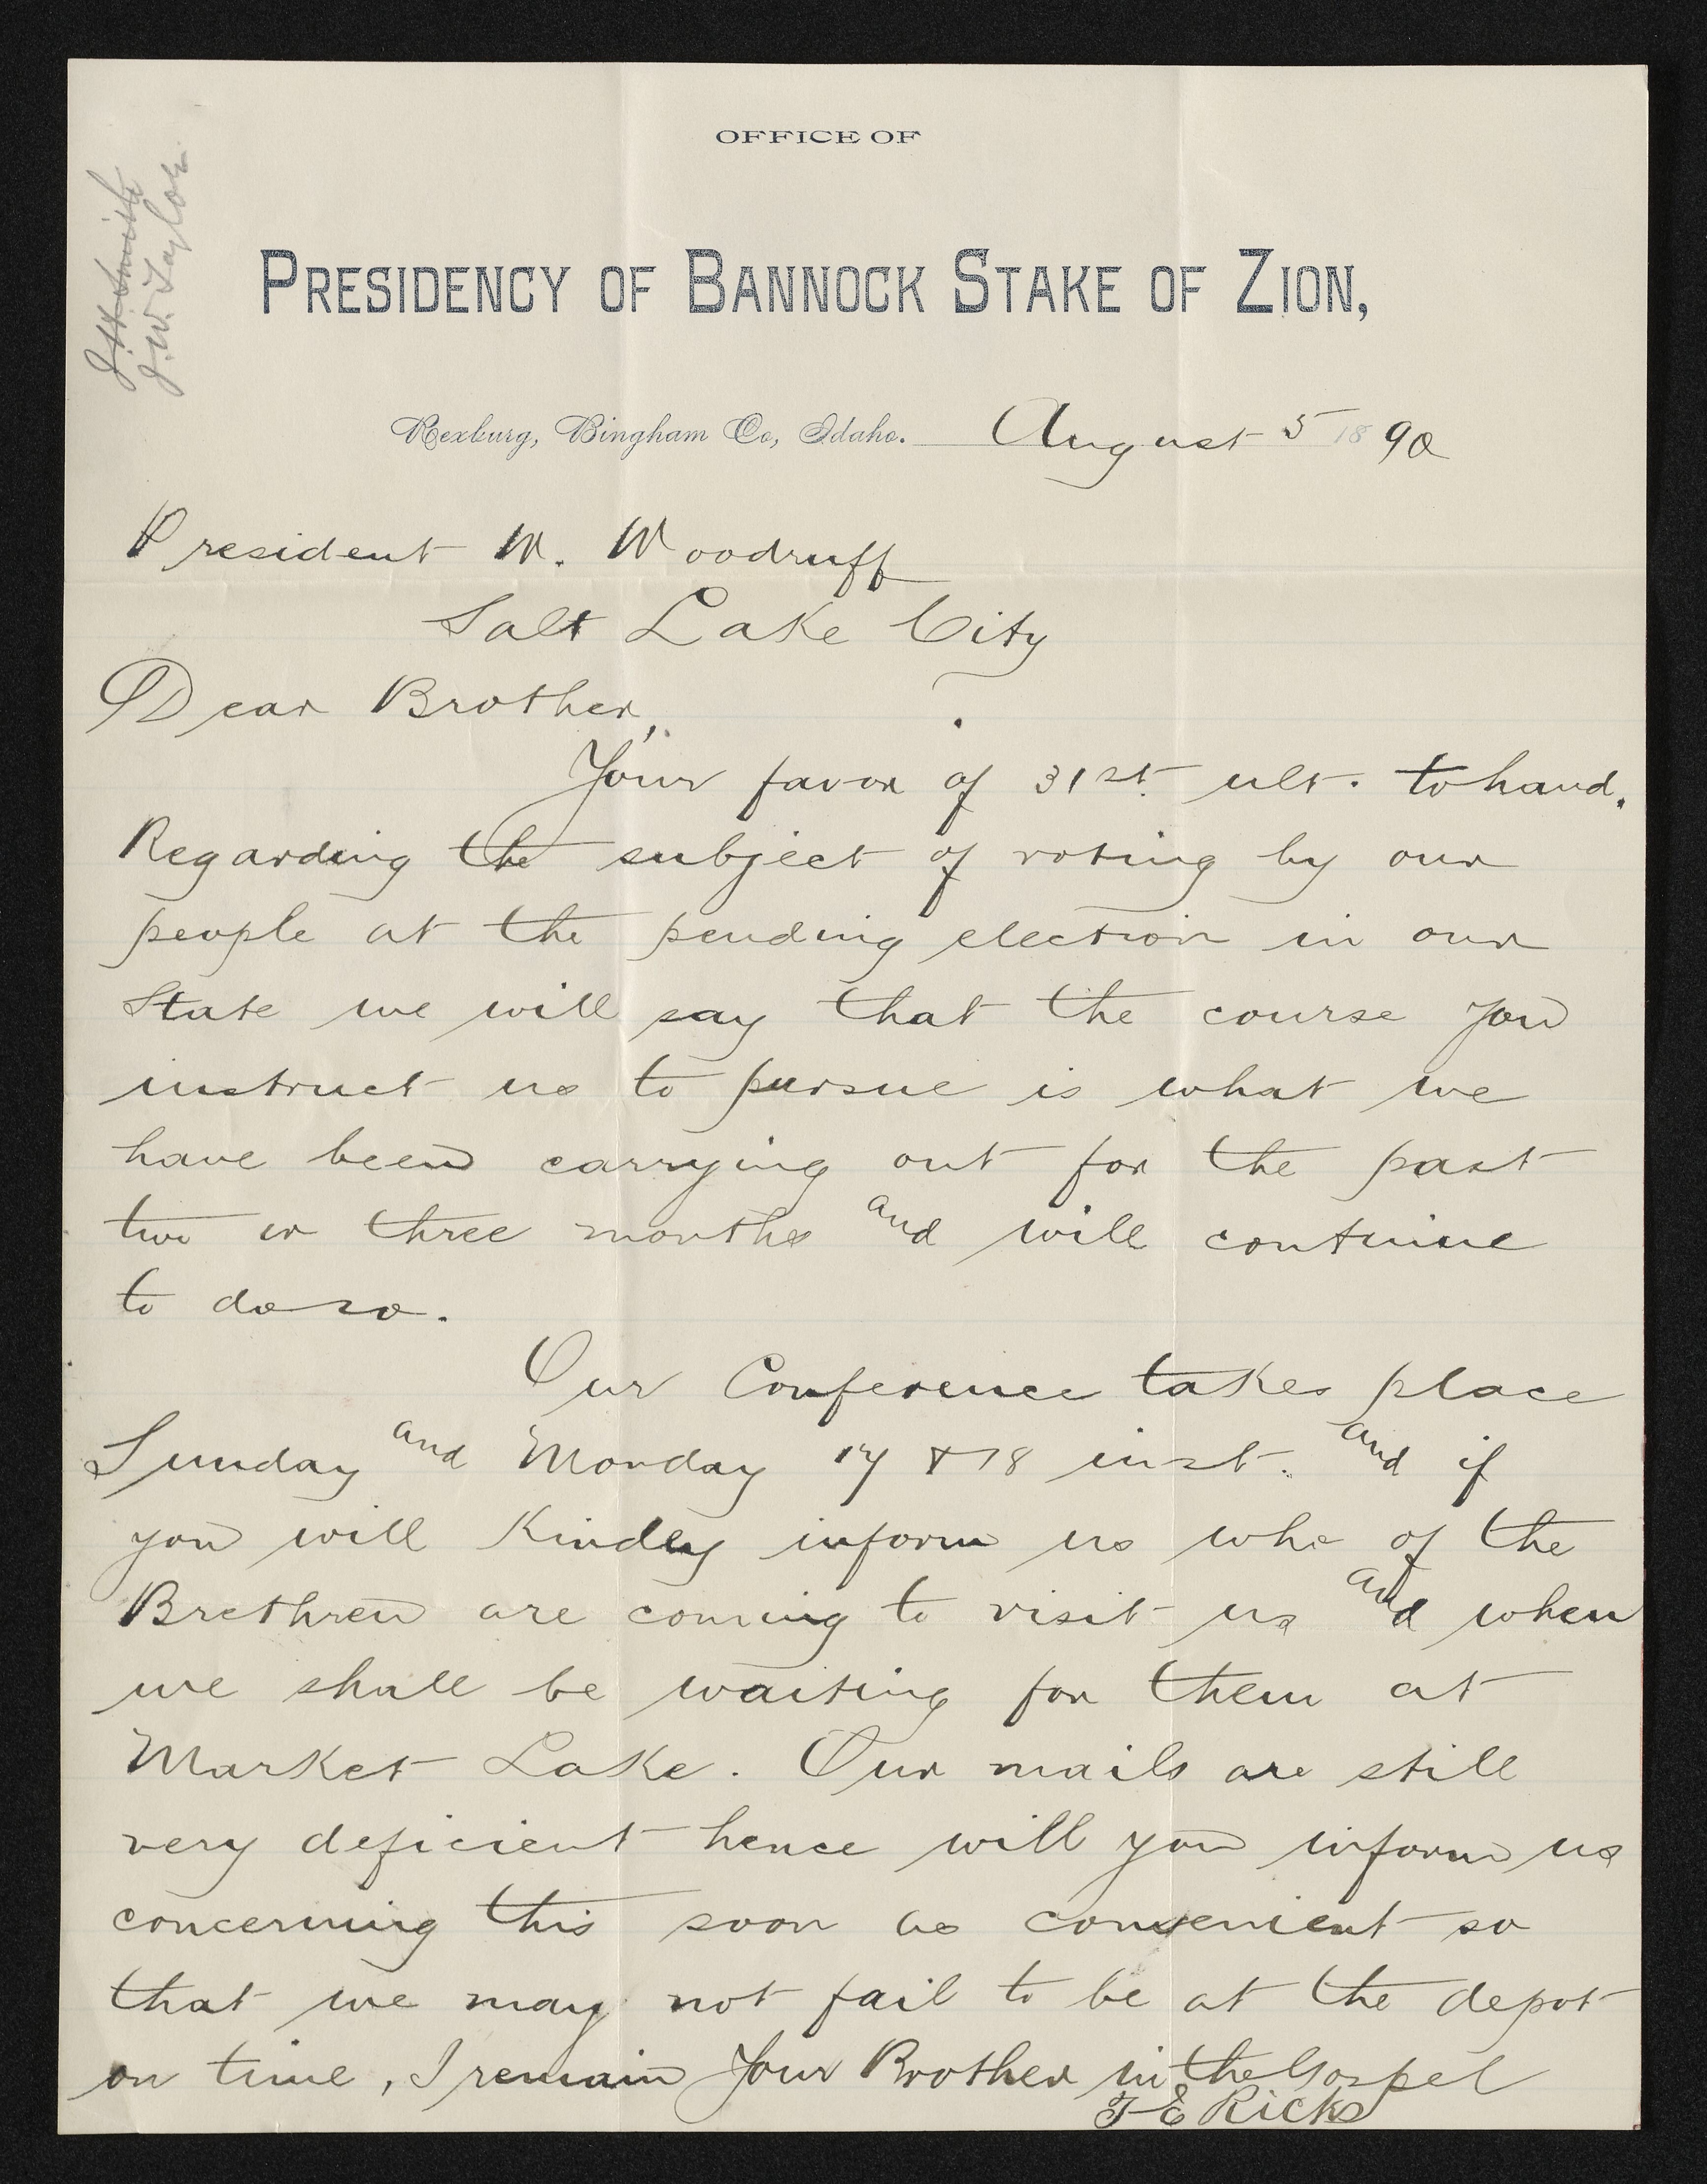 J. H. Smith
J. W. Taylor.
OFFICE OF
PRESIDENCY OF BANNOCK STAKE OF ZION,
Rexburg, Bingham Co, Idaho. August 5 1890
President W. Woodruff
Salt Lake City
Dear Brother,
Your favor of 31st ult. to hand.
Regarding the subject of voting by our
people at the pending election in our
State we will say that the course you
instruct us to pursue is what we
have been carrying out for the past
two or three months and will continue
to do so.
Our Conference takes place
Sunday and Monday 17 & 18 inst. and if
you will Kindly inform us who of the
Brethren are coming to visit us and when
we shall be waiting for them at
Market Lake. Our mails are still
very deficient hence will you inform us
concerning this soon as convenient so
that we may not fail to be at the depot
on time, I remain Your Brother in the Gospel
T E Ricks